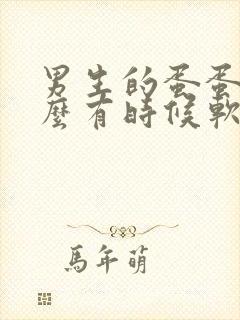 男生的蛋蛋
麼有時候軟
馬年萌